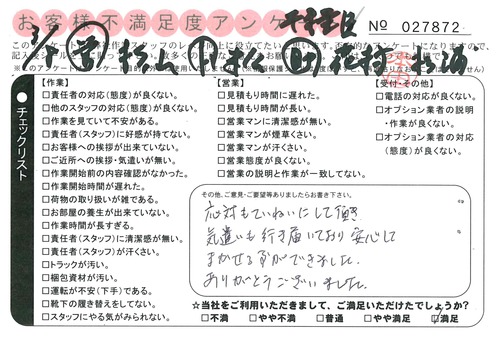 お客様不満足度アンケ
No 027872
【作業】
□責任者の対応(態度)が良くない。
□他のスタッフの対応(態度)が良くない。
□作業を見ていて不安がある。
□責任者(スタッフ)に好感が持てない。
□お客様への挨拶が出来ていない。
□ご近所への挨拶・気遣いが無い。
□作業開始前の内容確認がなかった。
□作業開始時間が遅れた。
□荷物の取り扱いが雑である。
□お部屋の養生が出来ていない。
□作業時間が長すぎる。
□責任者(スタッフ)に清潔感が無い。
□責任者(スタッフ)が汗くさい。
□トラックが汚い。
□梱包資材が汚い。
□運転が不安(下手)である。
□靴下の履き替えをしてない。
□スタッフにやる気がみられない。
【営業】
□見積もり時間に遅れた。
□見積もり時間が長い。
□営業マンに清潔感が無い。
□営業マンが煙草くさい。
□営業マンが汗くさい。
□営業態度が良くない。
□営業の説明と作業が一致してない。
【受付・その他】
□電話の対応が良くない。
□オプション業者の説明
・作業が良くない。
□オプション業者の対応
(態度)が良くない。
●チェックリスト
その他、ご意見・ご要望等ありましたらお書き下さい。
応対もていねいにして頂き
気遣いも行き届いており安心して
まかせる事ができました。
ありがとうございました。
☆当社をご利用いただきまして、ご満足いただけたでしょうか?
□不満 □やや不満 □普通 □やや満足 □満足